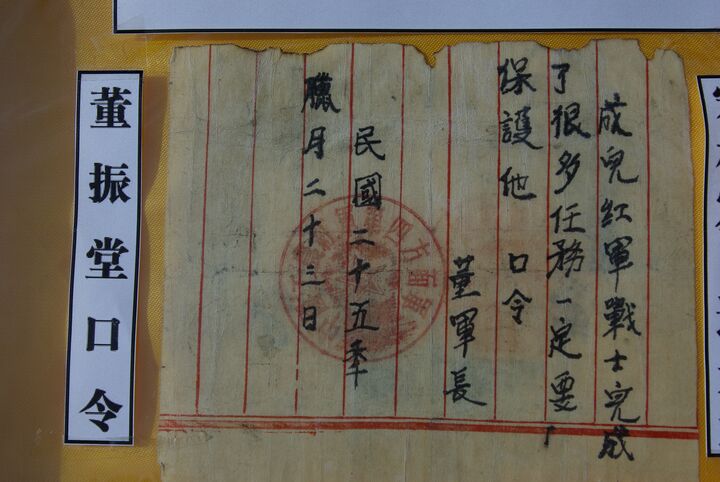 成兒紅軍戰士完成
了很多任務一定要
保護他 口令
董軍長
民國二十五秊
臘月二十三日
董振堂口令